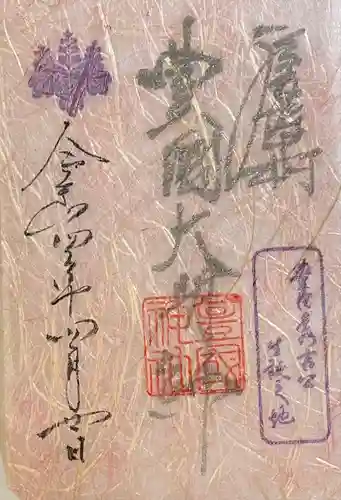 豊國大明神
豊国
神社
豊臣秀吉公
生誕之地
令和四年四月日